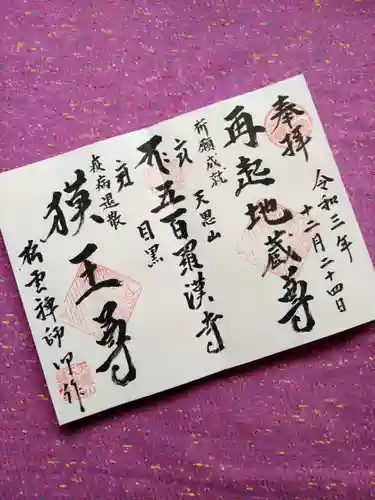 奉拝
令和三年
十二月二十四日
再起地蔵尊
祈願成就
天恩山
五百羅漢寺
目黒
疫病退散
獏王尊
松雲禅師